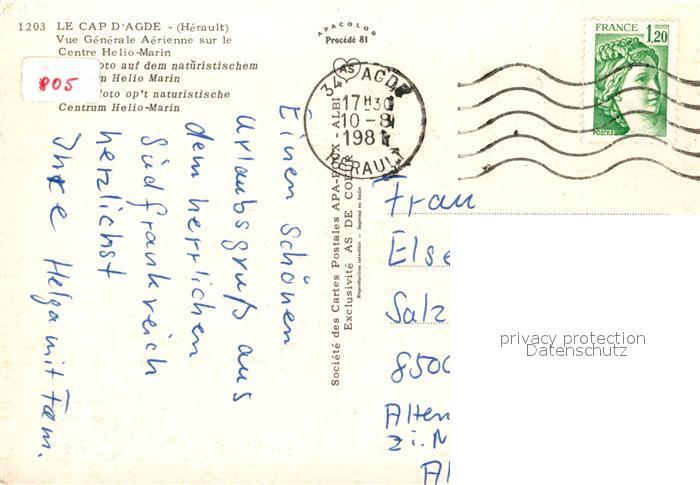 1203 LE CAP D'AGDE - (Hérault)
Vue Générale Aérienne sur le
Centre Helio-Marin
oto auf dem naturistischem
m Helio Marin
oto op't naturistische
Centrum Helio-Marin
805
APACOLOR
Procédé 81
34 AGDE
17H30
10-8
1981
HERAULT
FRANCE
1,20
POSTES
Société des Cartes Postales APA-POUX - ALBI
Exclusivité AS DE CŒUR
Reproduction interdite - Imprimé en Italie
Einen schönen
Urlaubsgruß aus
dem herrlichen
Südfrankreich
herzlichst
Ihre Helga mit Fam.
Frau
Else
Salz
8500
Alten
z.i.N
Al
privacy protection
Datenschutz